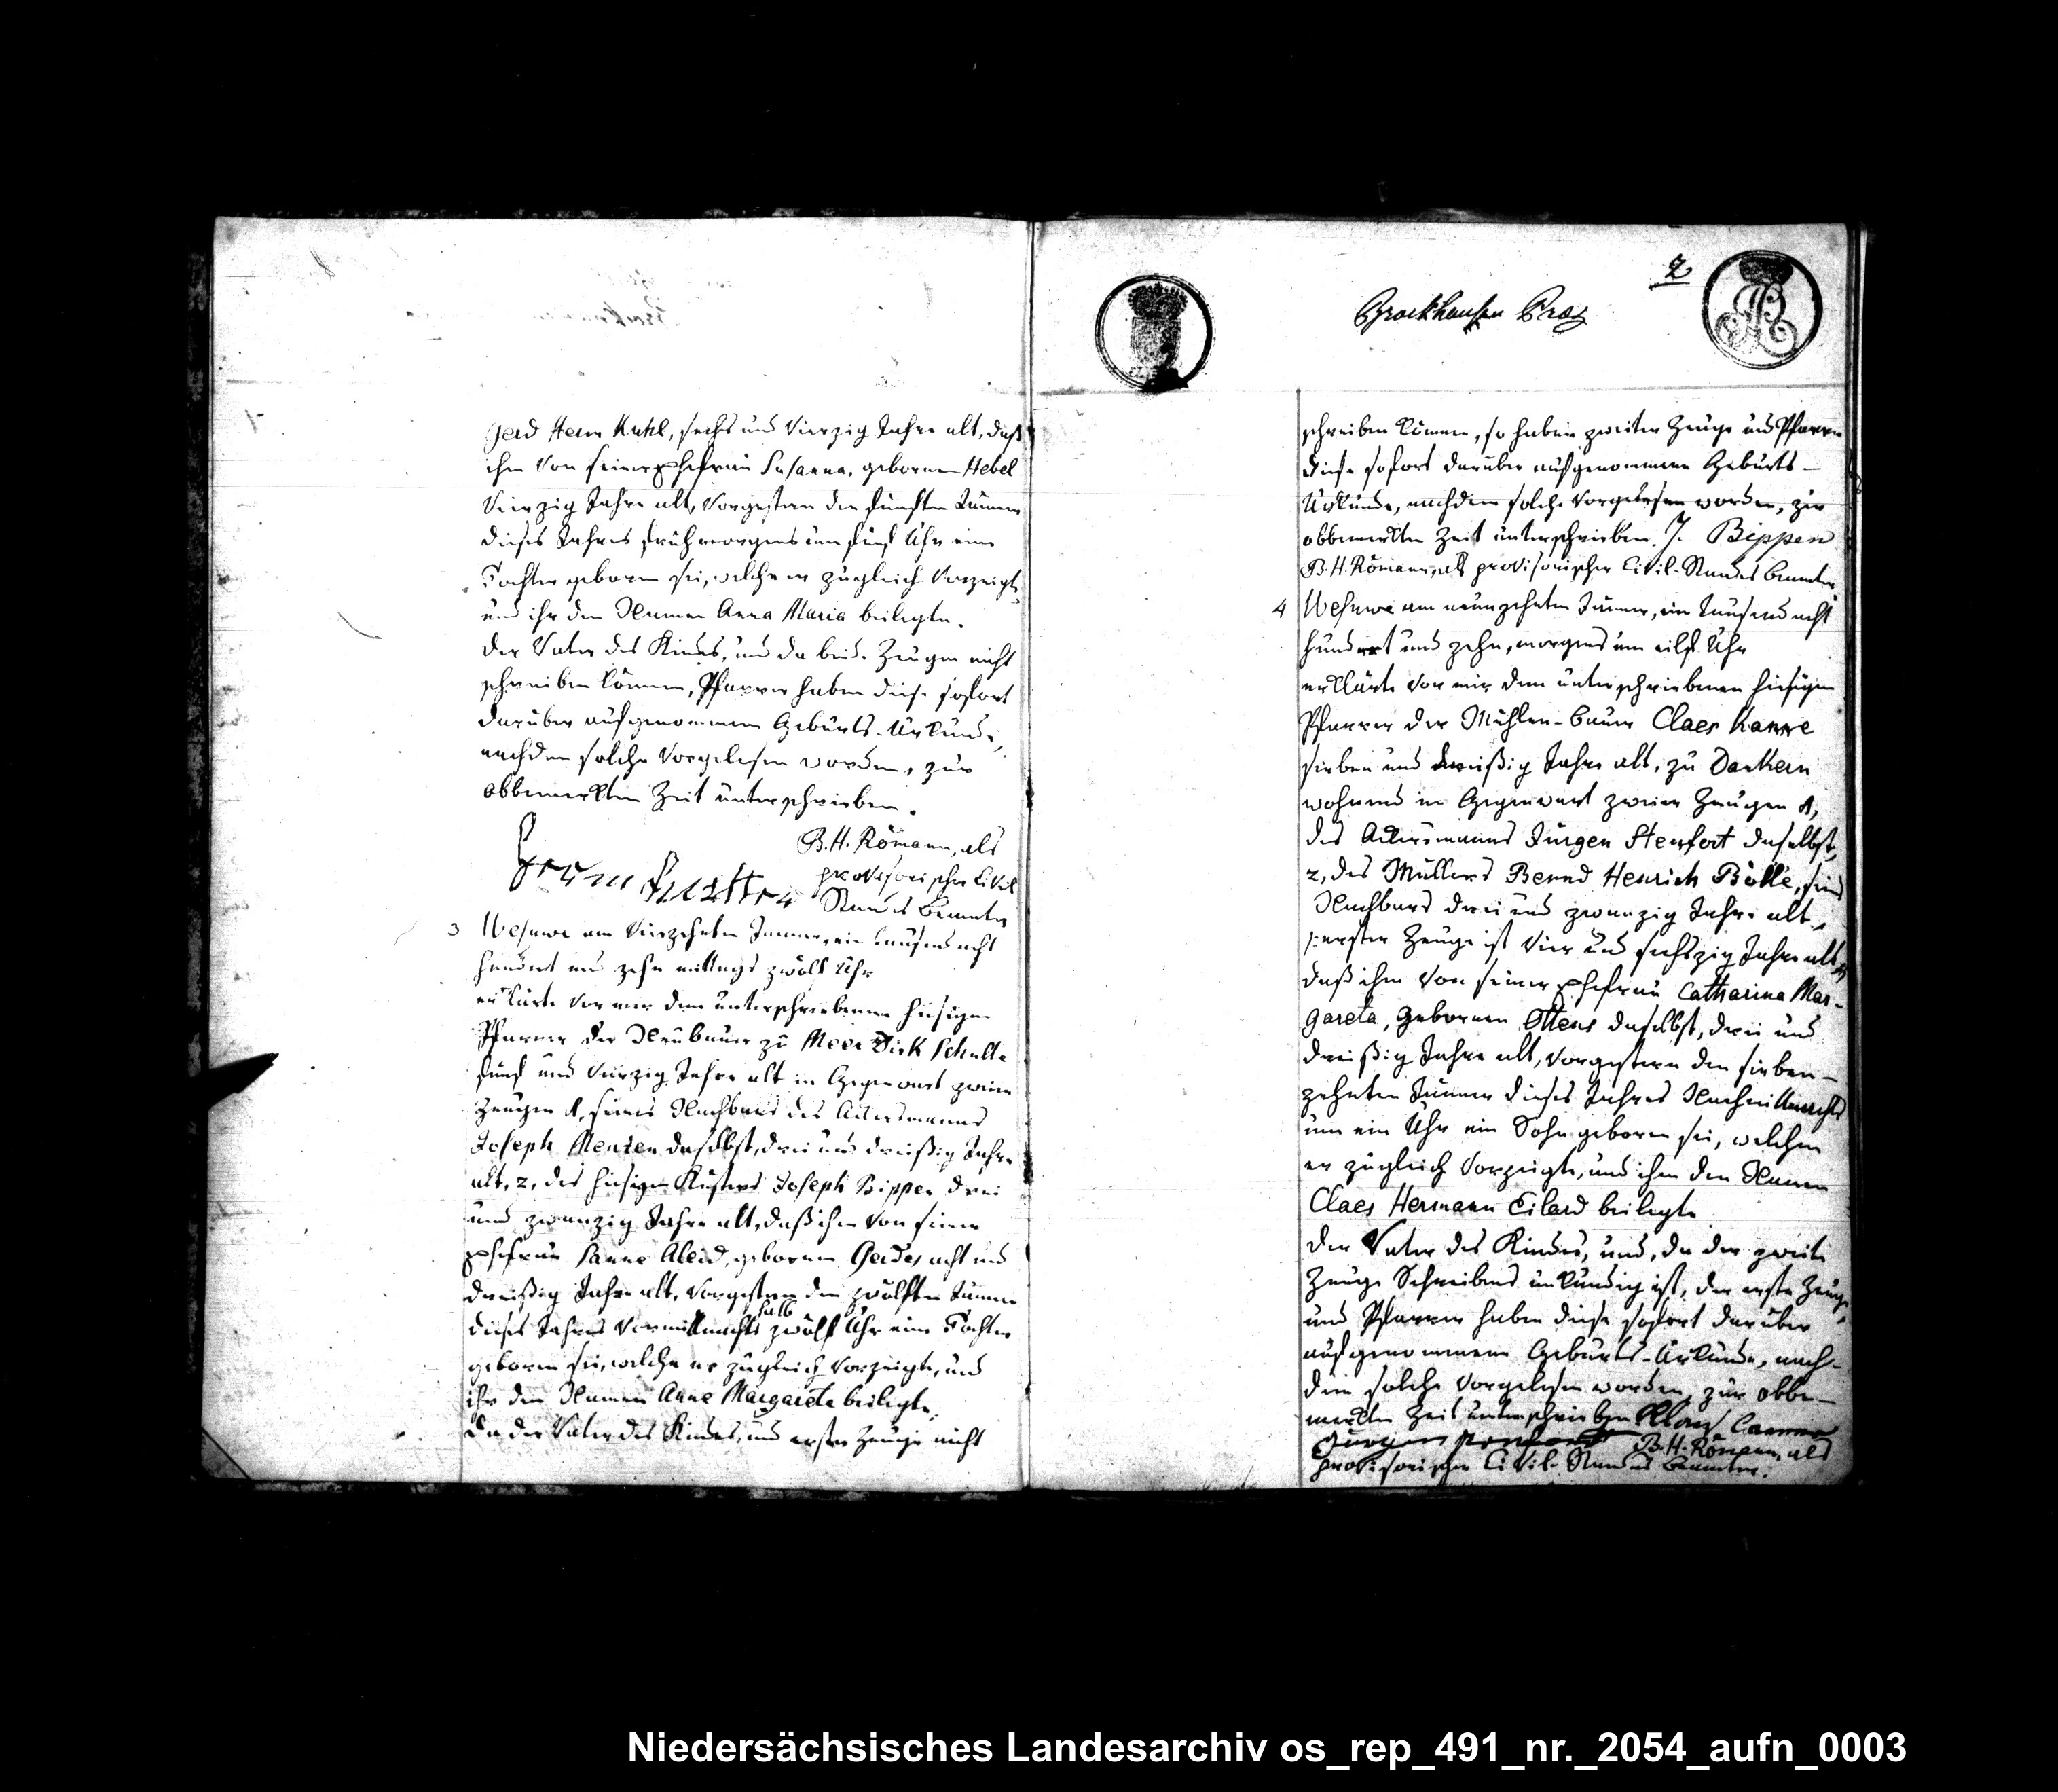 Gerd Herm Kuhl, sechs und Vierzig Jahre alt, daß
ihm Von seiner Ehefrau Susanna, gebornen Hebel
Vierzig Jahre alt, Vorgestern den fünften Jänner
dieses Jahres früh morgens um fünf Uhr eine
Tochter geboren sei, welche er zugleich Vorzeigte,
und ihr den Namen Anna Maria beilegte.
Der Vater des Kindes, und da beide Zeugen nicht
schreiben können, Pfarrer haben diese sofort
darüber aufgenommene Geburts-Urkunde,
nachdem solche Vorgelesen worden, zur
obbemerkten Zeit unterschrieben.
B. H. Römann, als
provisorischer Civil
Standes Beamter
3 Wesuwe am Vierzehnten Jänner, ein tausend acht
hundert und zehn mittags zwölf Uhr
erklärte Vor mir dem unterschriebenen hiesigen
Pfarrer der Neubauer zu Meer Dirk Schulte
fünf und Vierzig Jahre alt in Gegenwart zweier
Zeugen 1, seines Nachbars des Ackersmanns
Joseph Menzen daselbst, drei und dreißig Jahre
alt, 2, des hiesigen Küsters Joseph Bippen drei
und zwanzig Jahre alt, daß ihm Von seiner
Ehefrau Sanne Aleid, gebornen Gerdes acht und
dreißig Jahre alt, Vorgestern den zwölften Jänner
dieses Jahres Vormittnachts halb zwölf Uhr eine Tochter
geboren sei, welche er zugleich Vorzeigte, und
ihr den Namen Anne Margareta beilegte.
Da der Vater des Kindes, und erster Zeuge nicht
2
Brockhausen Präs
schreiben können, so haben zweiter Zeuge und Pfarrer
diese sofort darüber aufgenommene Geburts-
Urkunde, nachdem solche Vorgelesen worden, zur
obbemerkten Zeit unterschrieben. J. Bippen
B. H. Römann, als provisorischer Civil-Standes Beamter
4 Wesuwe am neunzehnten Jänner, ein tausend acht
hundert und zehn, morgens um eilf Uhr
erklärte Vor mir dem unterschriebenen hiesigen
Pfarrer der Mühlen-bauer Claes Kanne
sieben und dreißig Jahre alt, zu Dankern
wohnend in Gegenwart zweier Zeugen 1,
des Ackersmanns Jürgen Stenfort daselbst,
2, des Müllers Bernd Henrich Bölle, seines
Nachbars drei und zwanzig Jahre alt,
/:erster Zeuge ist Vier und sechszig Jahre alt:/
daß ihm Von seiner Ehefrau Catharina Mar-
gareta, gebornen Ottens daselbst, drei und
dreißig Jahre alt, Vorgestern den sieben-
zehnten Jänner dieses Jahres Nachmittnachts
um ein Uhr ein Sohn geboren sei, welchen
er zugleich Vorzeigte, und ihm den Namen
Claes Hermann Eilard beilegte
Der Vater des Kindes, und, da der zweite
Zeuge Schreibens unkundig ist, der erste Zeuge,
und Pfarrer haben diese sofort darüber
aufgenommene Geburts-Urkunde, nach-
dem solche Vorgelesen worden, zur obbe-
merkten Zeit unterschrieben Klaas Canne
B. H. Römann, als
provisorischer Civil-Standes Beamter.
Niedersächsisches Landesarchiv os_rep_491_nr._2054_aufn_0003